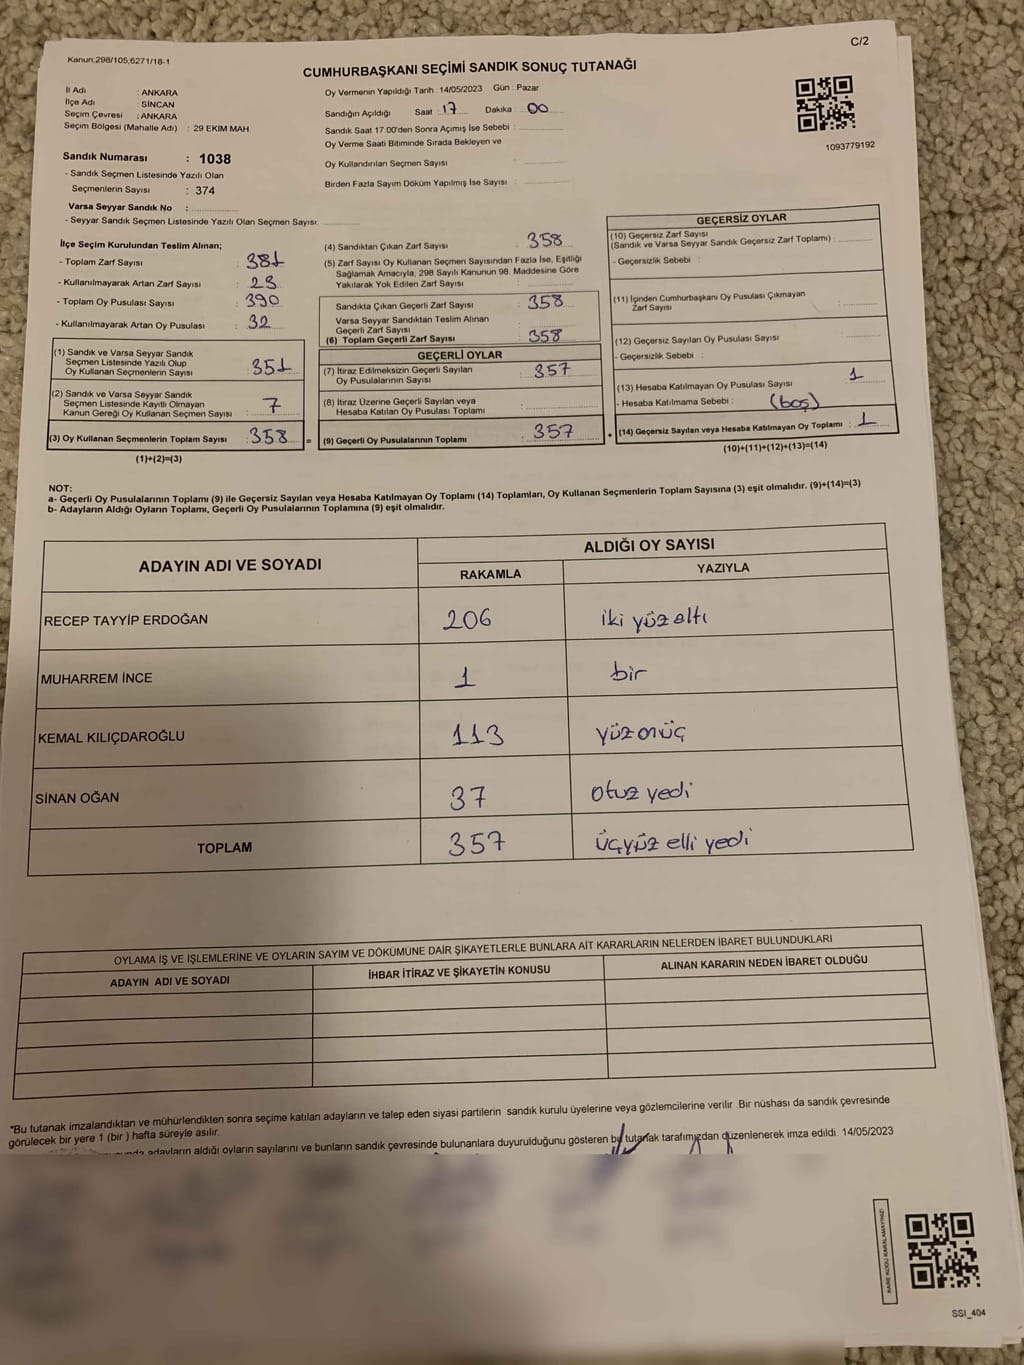 C/2
Kanun,298/105,6271/18-1
CUMHURBAŞKANI SEÇİMİ SANDIK SONUÇ TUTANAĞI
İl Adı : ANKARA
İlçe Adı : SİNCAN
Seçim Çevresi : ANKARA
Seçim Bölgesi (Mahalle Adı) : 29 EKİM MAH
Sandık Numarası : 1038
- Sandık Seçmen Listesinde Yazılı Olan
Seçmenlerin Sayısı : 374
Varsa Seyyar Sandık No :
- Seyyar Sandık Seçmen Listesinde Yazılı Olan Seçmen Sayısı:
Oy Vermenin Yapıldığı Tarih : 14/05/2023 Gün : Pazar
Sandığın Açıldığı Saat : 17 Dakika : 00
Sandık Saat 17.00'den Sonra Açımış İse Sebebi :
Oy Verme Saati Bitiminde Sırada Bekleyen ve
Oy Kullandırılan Seçmen Sayısı :
Birden Fazla Sayım Döküm Yapılmış İse Sayısı :
1093779192
İlçe Seçim Kurulundan Teslim Alınan;
- Toplam Zarf Sayısı : 381
- Kullanılmayarak Artan Zarf Sayısı : 23
- Toplam Oy Pusulası Sayısı : 390
- Kullanılmayarak Artan Oy Pusulası : 32
(1) Sandık ve Varsa Seyyar Sandık
Seçmen Listesinde Yazılı Olup
Oy Kullanan Seçmenlerin Sayısı : 351
(2) Sandık ve Varsa Seyyar Sandık
Seçmen Listesinde Kayıtlı Olmayan
Kanun Gereği Oy Kullanan Seçmen Sayısı : 7
(3) Oy Kullanan Seçmenlerin Toplam Sayısı : 358 =
(1)+(2)=(3)
(4) Sandıktan Çıkan Zarf Sayısı : 358
(5) Zarf Sayısı Oy Kullanan Seçmen Sayısından Fazla İse, Eşitliği
Sağlamak Amacıyla, 298 Sayılı Kanunun 98. Maddesine Göre
Yakılarak Yok Edilen Zarf Sayısı :
Sandıkta Çıkan Geçerli Zarf Sayısı : 358
Varsa Seyyar Sandıktan Teslim Alınan
Geçerli Zarf Sayısı :
(6) Toplam Geçerli Zarf Sayısı : 358
GEÇERLİ OYLAR
(7) İtiraz Edilmeksizin Geçerli Sayılan
Oy Pusulalarının Sayısı : 357
(8) İtiraz Üzerine Geçerli Sayılan veya
Hesaba Katılan Oy Pusulası Toplamı :
(9) Geçerli Oy Pusulalarının Toplamı : 357 +
GEÇERSİZ OYLAR
(10) Geçersiz Zarf Sayısı
(Sandık ve Varsa Seyyar Sandık Geçersiz Zarf Toplamı) :
- Geçersizlik Sebebi :
(11) İçinden Cumhurbaşkanı Oy Pusulası Çıkmayan
Zarf Sayısı :
(12) Geçersiz Sayılan Oy Pusulası Sayısı :
- Geçersizlik Sebebi :
(13) Hesaba Katılmayan Oy Pusulası Sayısı : 1
- Hesaba Katılmama Sebebi : (boş)
(14) Geçersiz Sayılan veya Hesaba Katılmayan Oy Toplamı : 1
(10)+(11)+(12)+(13)=(14)
NOT:
a- Geçerli Oy Pusulalarının Toplamı (9) ile Geçersiz Sayılan veya Hesaba Katılmayan Oy Toplamı (14) Toplamları, Oy Kullanan Seçmenlerin Toplam Sayısına (3) eşit olmalıdır. (9)+(14)=(3)
b- Adayların Aldığı Oyların Toplamı, Geçerli Oy Pusulalarının Toplamına (9) eşit olmalıdır.
ADAYIN ADI VE SOYADI ALDIĞI OY SAYISI
RAKAMLA YAZIYLA
RECEP TAYYİP ERDOĞAN 206 iki yüz altı
MUHARREM İNCE 1 bir
KEMAL KILIÇDAROĞLU 113 yüz onüç
SİNAN OĞAN 37 otuz yedi
TOPLAM 357 üçyüz elli yedi
OYLAMA İŞ VE İŞLEMLERİNE VE OYLARIN SAYIM VE DÖKÜMÜNE DAİR ŞİKAYETLERLE BUNLARA AİT KARARLARIN NELERDEN İBARET BULUNDUKLARI
ADAYIN ADI VE SOYADI İHBAR İTİRAZ VE ŞİKAYETİN KONUSU ALINAN KARARIN NEDEN İBARET OLDUĞU
*Bu tutanak imzalandıktan ve mühürlendikten sonra seçime katılan adayların ve talep eden siyasi partilerin sandık kurulu üyelerine veya gözlemcilerine verilir .Bir nüshası da sandık çevresinde
görülecek bir yere 1 (bir ) hafta süreyle asılır.
adayların aldığı oyların sayılarını ve bunların sandık çevresinde bulunanlara duyurulduğunu gösteren bu tutanak tarafımızdan düzenlenerek imza edildi. 14/05/2023
KARE KODU KARALAMAYINIZ!
SSI_404